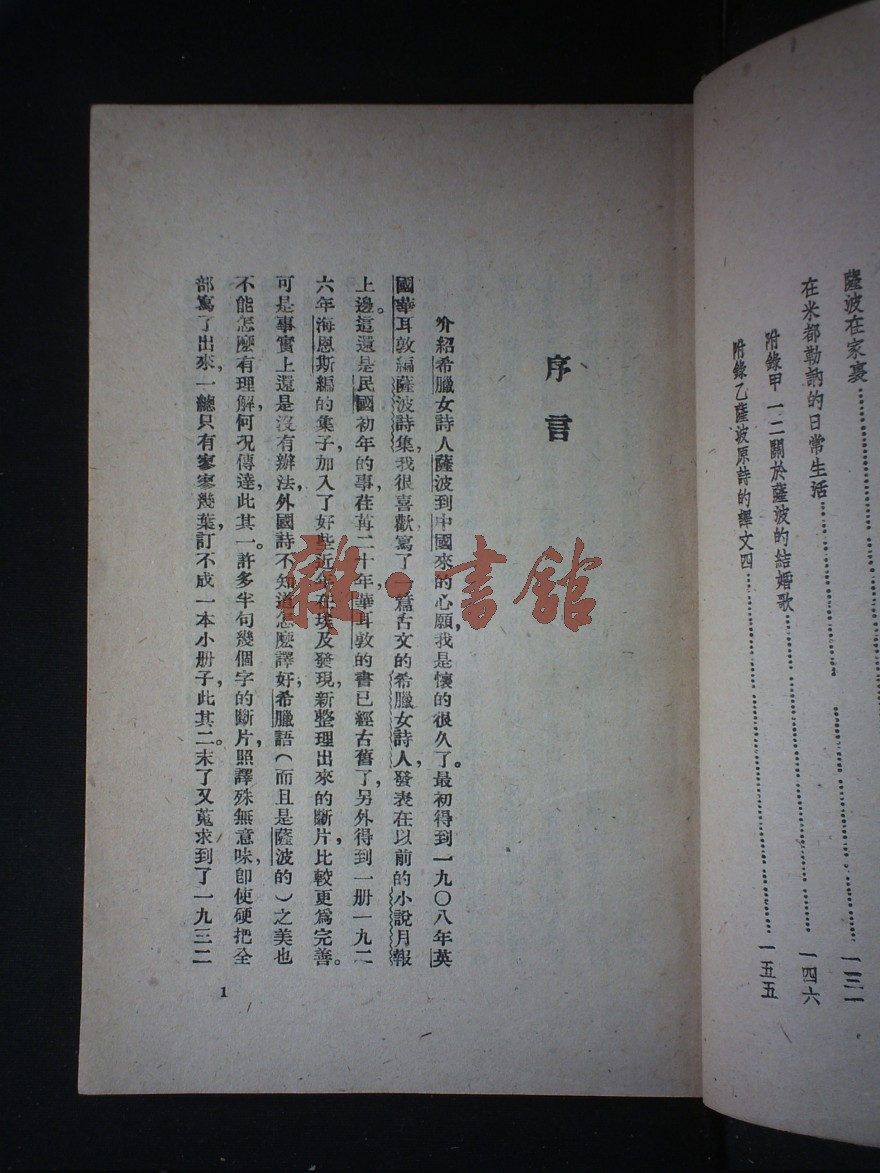 薩波在家裏……一三一
在米都勒訥的日常生活……一四六
附錄甲 一二關於薩波的結婚歌……
附錄乙薩波原詩的譯文四……一五五
序言
介紹希臘女詩人薩波到中國來的心願，我是懷的很久了。最初得到一九〇八年英
國華耳敦編薩波詩集，我很喜歡寫了一篇古文的希臘女詩人，發表在以前的小說月報
上邊。這還是民國初年的事，荏苒二十年，華耳敦的書已經古舊了，另外得到一册一九二
六年海恩斯編的集子，加入了好些近年在埃及發現，新整理出來的斷片，比較更爲完善。
可是事實上還是沒有辦法，外國詩不知道怎麼譯好，希臘語（而且是薩波的）之美也
不能怎麼有理解，何況傳達，此其一。許多半句幾個字的斷片，照譯殊無意味，卽使硬把全
部寫了出來，一總只有寥寥幾葉，訂不成一本小册子，此其二。末了又蒐求到了一九三二
1
雜·書館